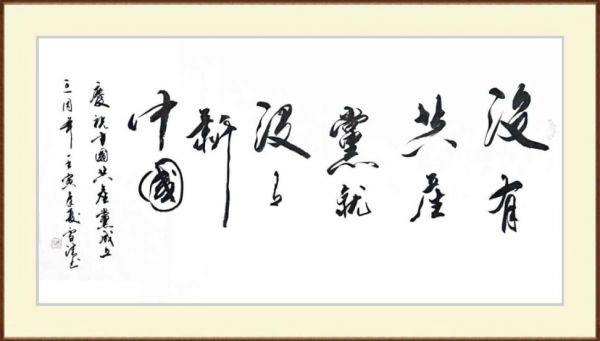 没有
共產
黨就
没有
新
中國
慶祝中國共產黨成立
一周年壬寅年夏雪清书